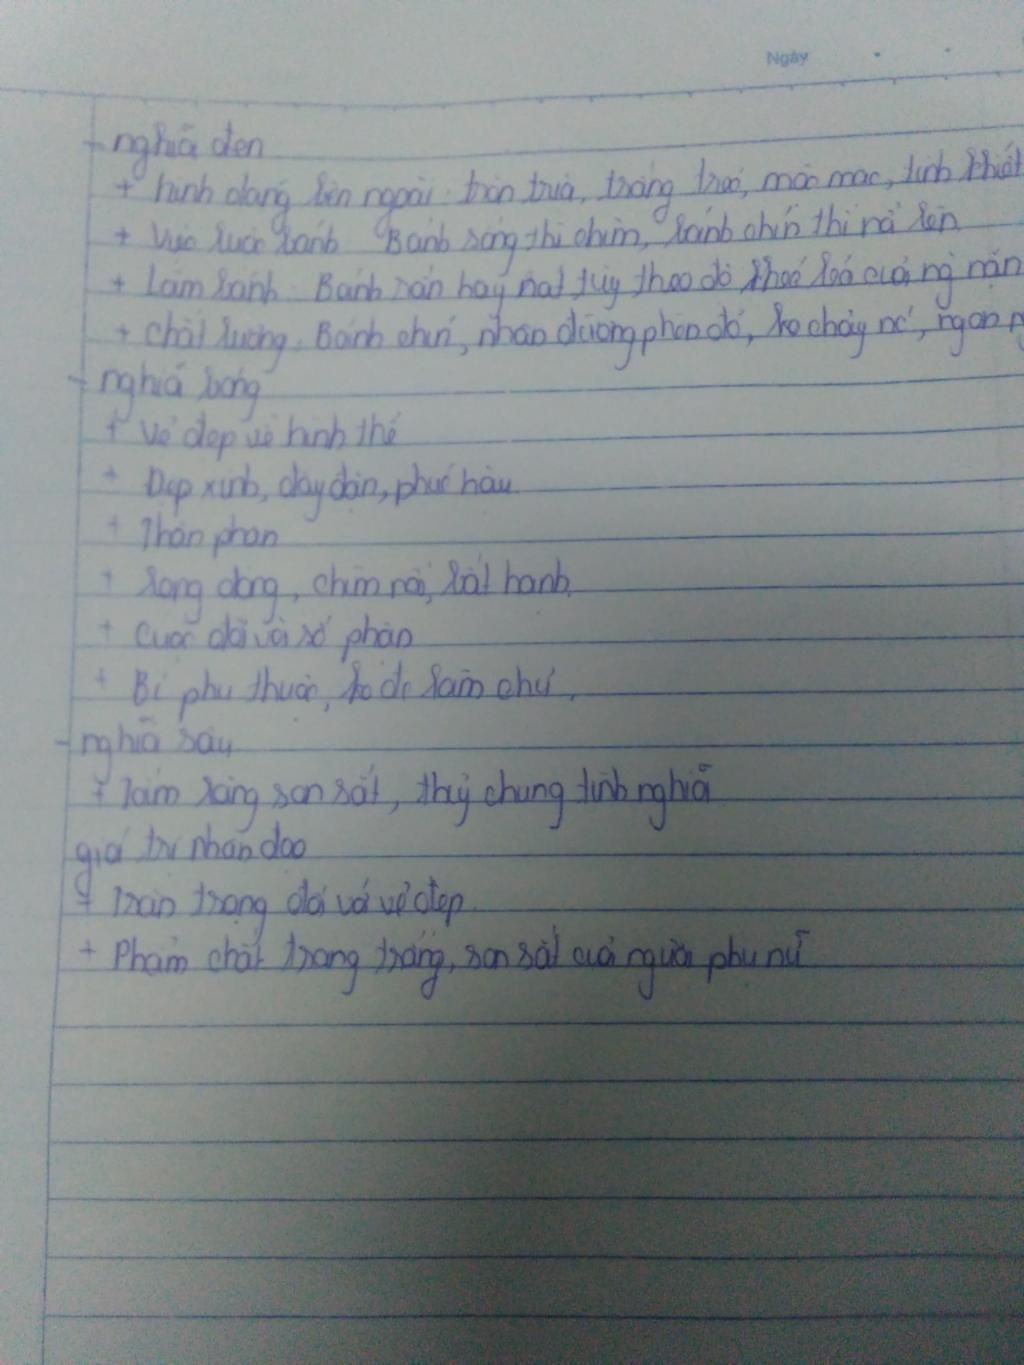 Ngày
- nghĩa đen
+ hình dáng bên ngoài: tròn trịa, trắng trẻo, mộc mạc, tinh khiết
+ Việc luộc bánh Bánh sống thì chìm, bánh chín thì nổi lên
+ Làm bánh: Bánh rắn hay nát tùy theo độ khéo léo của ng nặn
+ Chất lượng: Bánh chín, nhân đường phên đỏ, ko chảy nc, ngon
- nghĩa bóng
+ Vẻ đẹp về hình thể
+ Đẹp xinh, đầy đặn, phúc hậu
+ Thân phận
+ long đong, chìm nổi, bất hạnh
+ Cuộc đời và số phận
+ Bị phụ thuộc, ko đc làm chủ.
- nghĩa sâu
+ Tấm lòng son sắt, thuỷ chung tình nghĩa
giá trị nhân đạo
+ Trân trọng đối với vẻ đẹp.
+ Phẩm chất trong trắng, son sắt của người phụ nữ